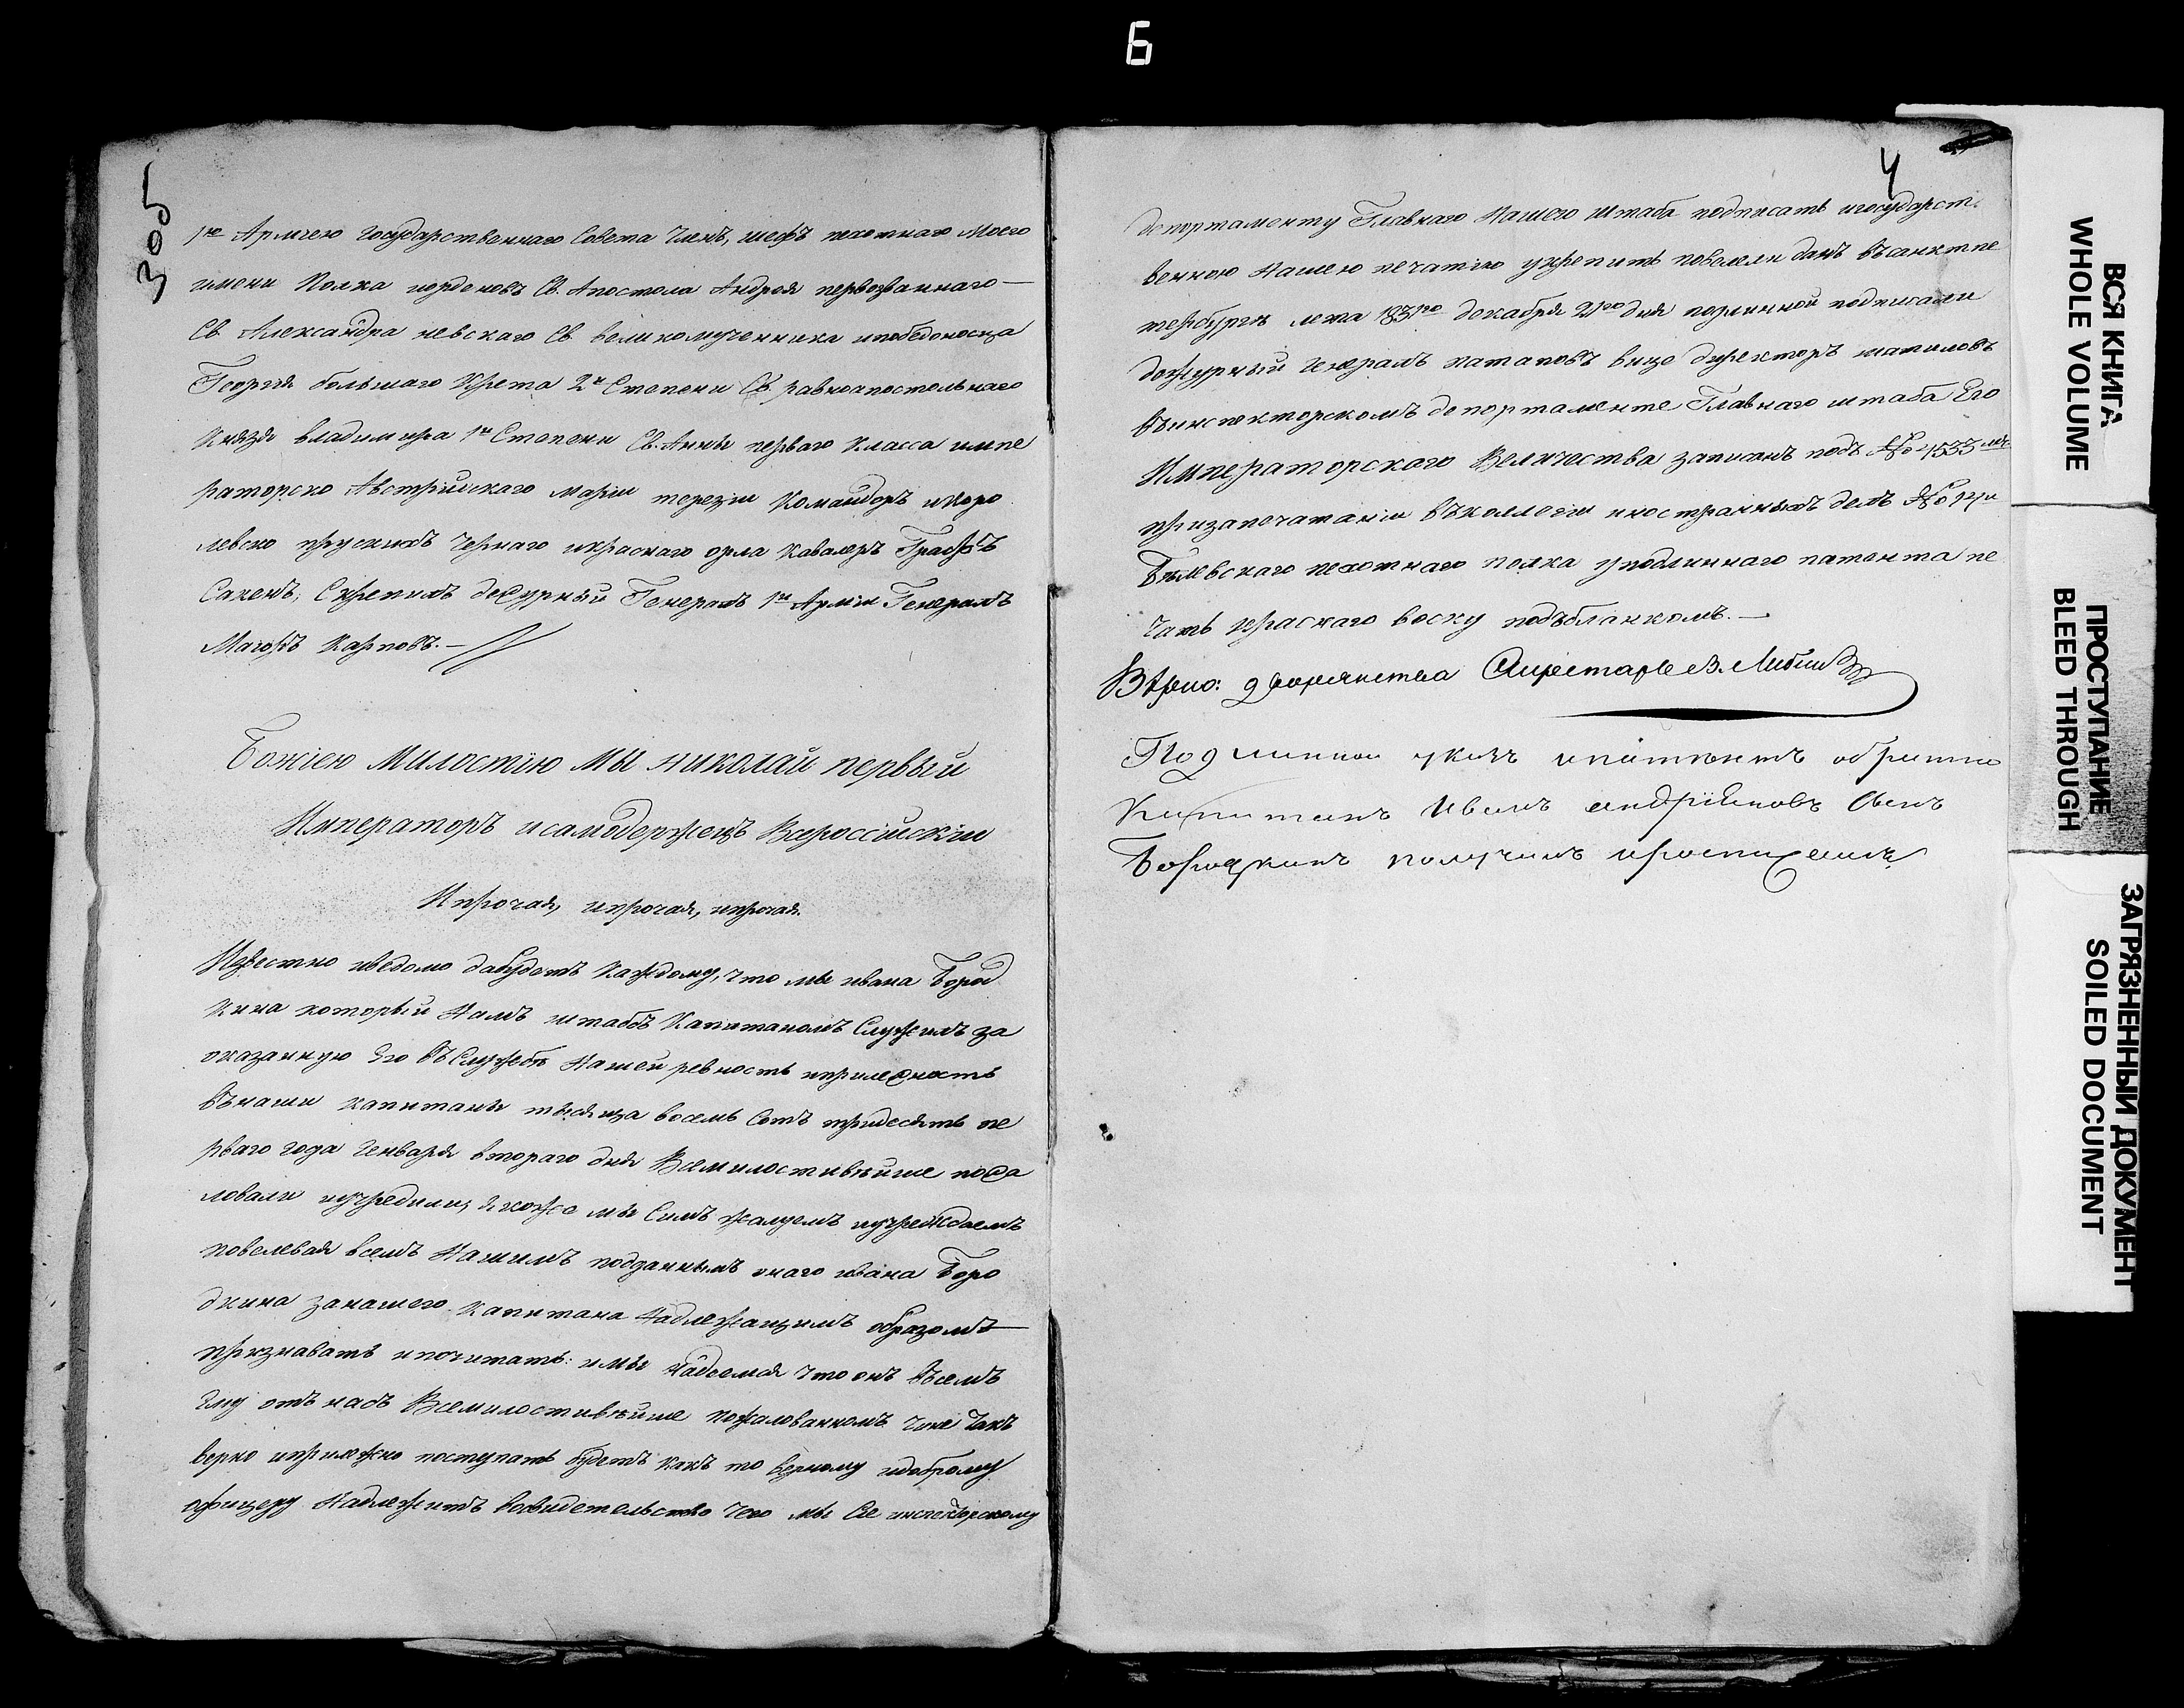 Б
305
1ю Армiею государственнаго Совета Членъ, шефъ пехотнаго Моего
имени Полка иорденовъ Св. Апостола Андрея первозваннаго —
Св. Александра невскаго Св. великомученника ипобедоносца
Георгия большаго Креста 2й Степени Св. равноапостольнаго
Князя владимира 1й Степени Св. Анны перваго Класса импе
раторско Австрiйскаго марiи терезiи Командоръ икоро
левско прускихъ Чернаго икраснаго орла Кавалеръ Графъ
Сакенъ, Скрепилъ дежурный Генералъ 1й Армiи Генералъ
Маiоръ Карповъ. —
Божiею Милостiю МЫ николай первый
Императоръ исамодержецъ Всероссiйскiй
Ипрочая, ипрочая, ипрочая.
Известно иведомо дабудетъ Каждому, что мы ивана Бород
кина который Намъ штабсъ Капитаномъ Служилъ за
оказанную Его въ Службе Нашей ревность иприлежность
Внаши капитаны тысяща восемь Сотъ тридесять пе
рваго года Генваря втораго дня Всемилостивейше пожа
ловали иучредили; якоже мы Симъ жалуемъ иучреждаемъ
повелевая всемъ Нашимъ подданнымъ онаго ивана Боро
дкина занашего Капитана Надлежащимъ образомъ
признавать ипочитать: имы надеемся что онъ Всемъ
Ему отъ насъ Всемилостивейше пожалованномъ чине такъ
верно иприлежно поступать будетъ какъ то верному идоброму
офицеру Надлежитъ Восвидетельство чего мы Сие инспекторскому
4
департаменту Главнаго Нашего штаба подписать игосударст
венною Нашею печатiю укрепить повелели данъ въсанктпе
тербурге лета 1831го декабря 21го дня подлинной подписали
дежурный Генералъ патаповъ вице директоръ шатиловъ
Винспекторскомъ департаменте Главнаго штаба Его
Императорского Величества записанъ подъ № 4533мъ
призапечатанiи вколлегiи иностранныхъ делъ №
Белевскаго пехотнаго полка уподлиннаго патента пе
чать краснаго воску подъбланкомъ. —
Верно: дворянства Сикретарь
Подлинной указъ ипатентъ обратно
Капитанъ Иванъ андрiановъ Сынъ
Бородкинъ получилъ ироспи
ВСЯ КНИГА
WHOLE VOLUME
ПРОСТУПАНИЕ
BLEED THROUGH
ЗАГРЯЗНЕННЫЙ ДОКУМЕНТ
SOILED DOCUMENT